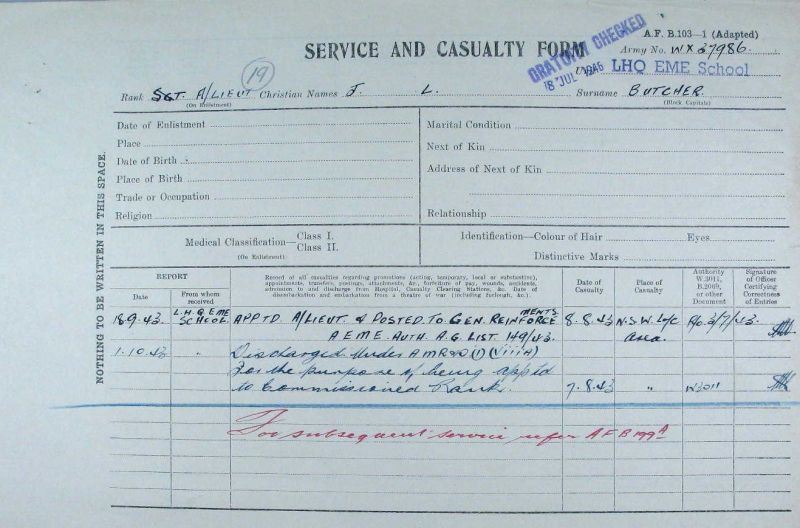 A.F. B.103—1 (Adapted)
SERVICE AND CASUALTY FORM
GRATUITY CHECKED
18 JUL 1946
Army No. WX 37986
Unit LHQ EME School
19
Rank SGT. A/LIEUT Christian Names J. L. Surname BUTCHER
(On Enlistment) (Block Capitals)
NOTHING TO BE WRITTEN IN THIS SPACE.
Date of Enlistment
Place
Date of Birth
Place of Birth
Trade or Occupation
Religion
Marital Condition
Next of Kin
Address of Next of Kin
Relationship
Medical Classification— Class I.
Class II.
(On Enlistment)
Identification—Colour of Hair Eyes
Distinctive Marks
REPORT
Date
From whom received
Record of all casualties regarding promotions (acting, temporary, local or substantive),
appointments, transfers, postings, attachments, &c., forfeiture of pay, wounds, accidents,
admission to and discharge from Hospital, Casualty Clearing Stations, &c. Date of
disembarkation and embarkation from a theatre of war (including furlough, &c.).
Date of Casualty
Place of Casualty
Authority W.3011, B.2069, or other Document
Signature of Officer Certifying Correctness of Entries
18.9.43. L.H.Q. EME SCHOOL. APPTD A/LIEUT. & POSTED TO GEN. REINFORCEMENTS 8.8.43 N.S.W. L/C area. R/o.3/7/43.
A E M E. AUTH. A.G. LIST 149/43.
1.10.43 " Discharged Under A M R 70 (1) (VIII A)
For the purpose of being apptd
to Commissioned Rank. 7.8.43 " W3011
For subsequent service refer A F B 199A